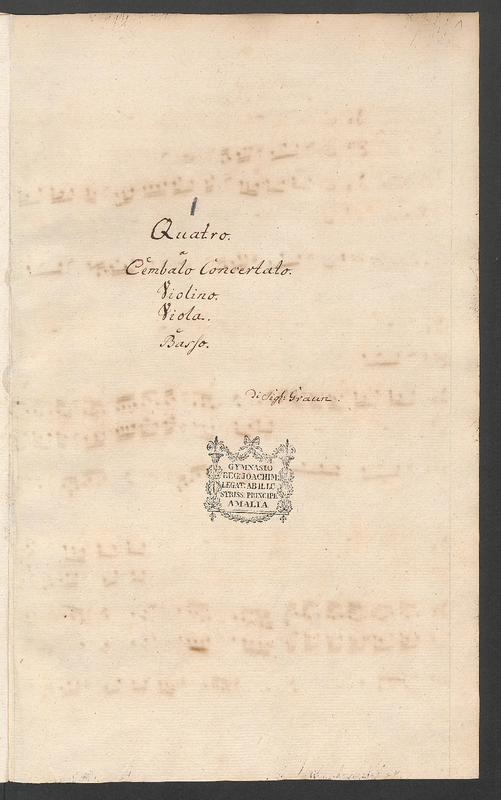 1
I
Quatro.
a
Cembalo Concertato.
Violino.
Viola.
e
Basso.
di Sigr. Graun.
GYMNASIO
REG. JOACHIM.
LEGAT: AB ILLU
STRISS. PRINCIPE
AMALIA